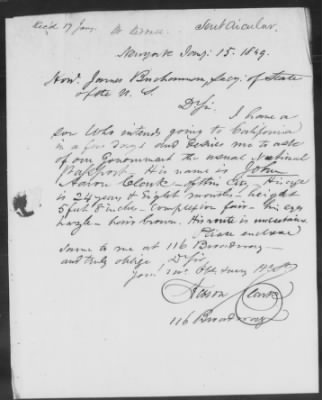 Rec'd 17 Jany. Sent Circular.
New york Jany. 15. 1849.
Hon. James Buchannon, Secy. of State
of the U. S
D Sir
I have a
son who intends going to California
in a few days and desires me to ask
of our Government the usual National
Passport. His name is John
Aaron Clark - of this City. His age
is 24 years & eight months - height
5 feet 8 inches - Complexion fair - his eyes
hazle - hair brown. His route is uncertain
Please enclose
same to me at 116 Broadway -
and truly oblige D Sir
Your
Aaron Clark
116 Broadway